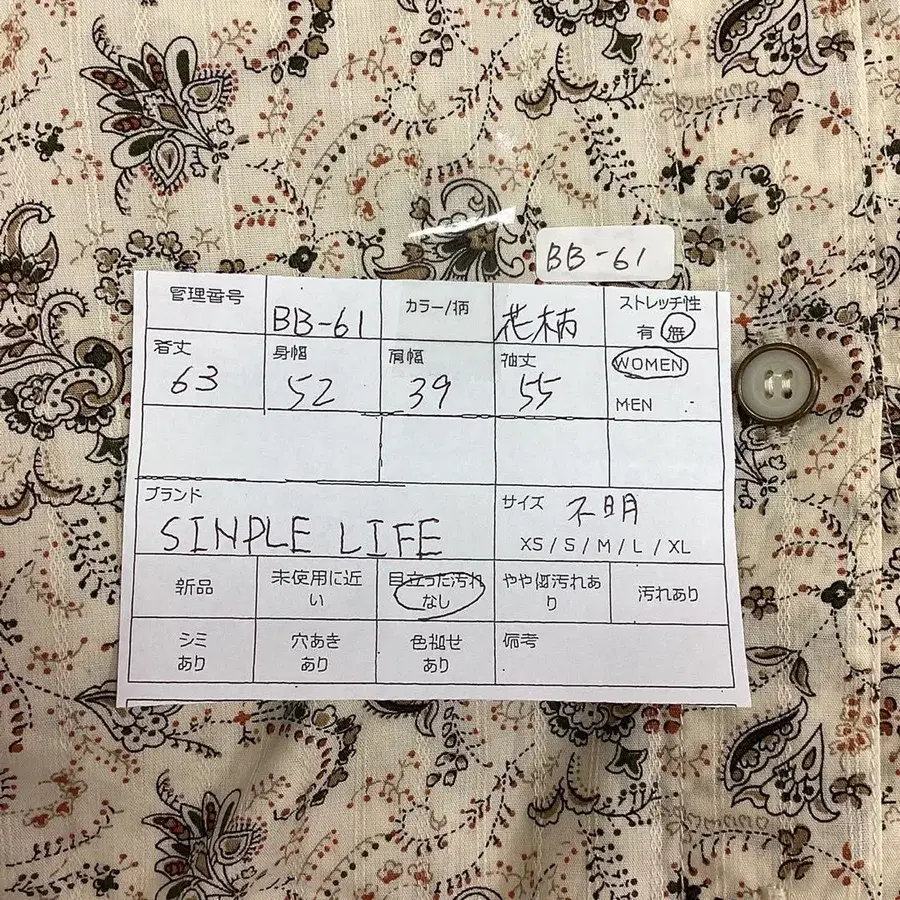 BB-61
管理番号 BB-61 カラー/柄 花柄 ストレッチ性
有 無
着丈 63 身幅 52 肩幅 39 袖丈 55 WOMEN
MEN
ブランド サイズ 不明
SINPLE LIFE XS / S / M / L / XL
新品 未使用に近 目立った汚れ やや傷汚れあ 汚れあり
い なし り
シミ 穴あき 色褪せ 備考
あり あり あり